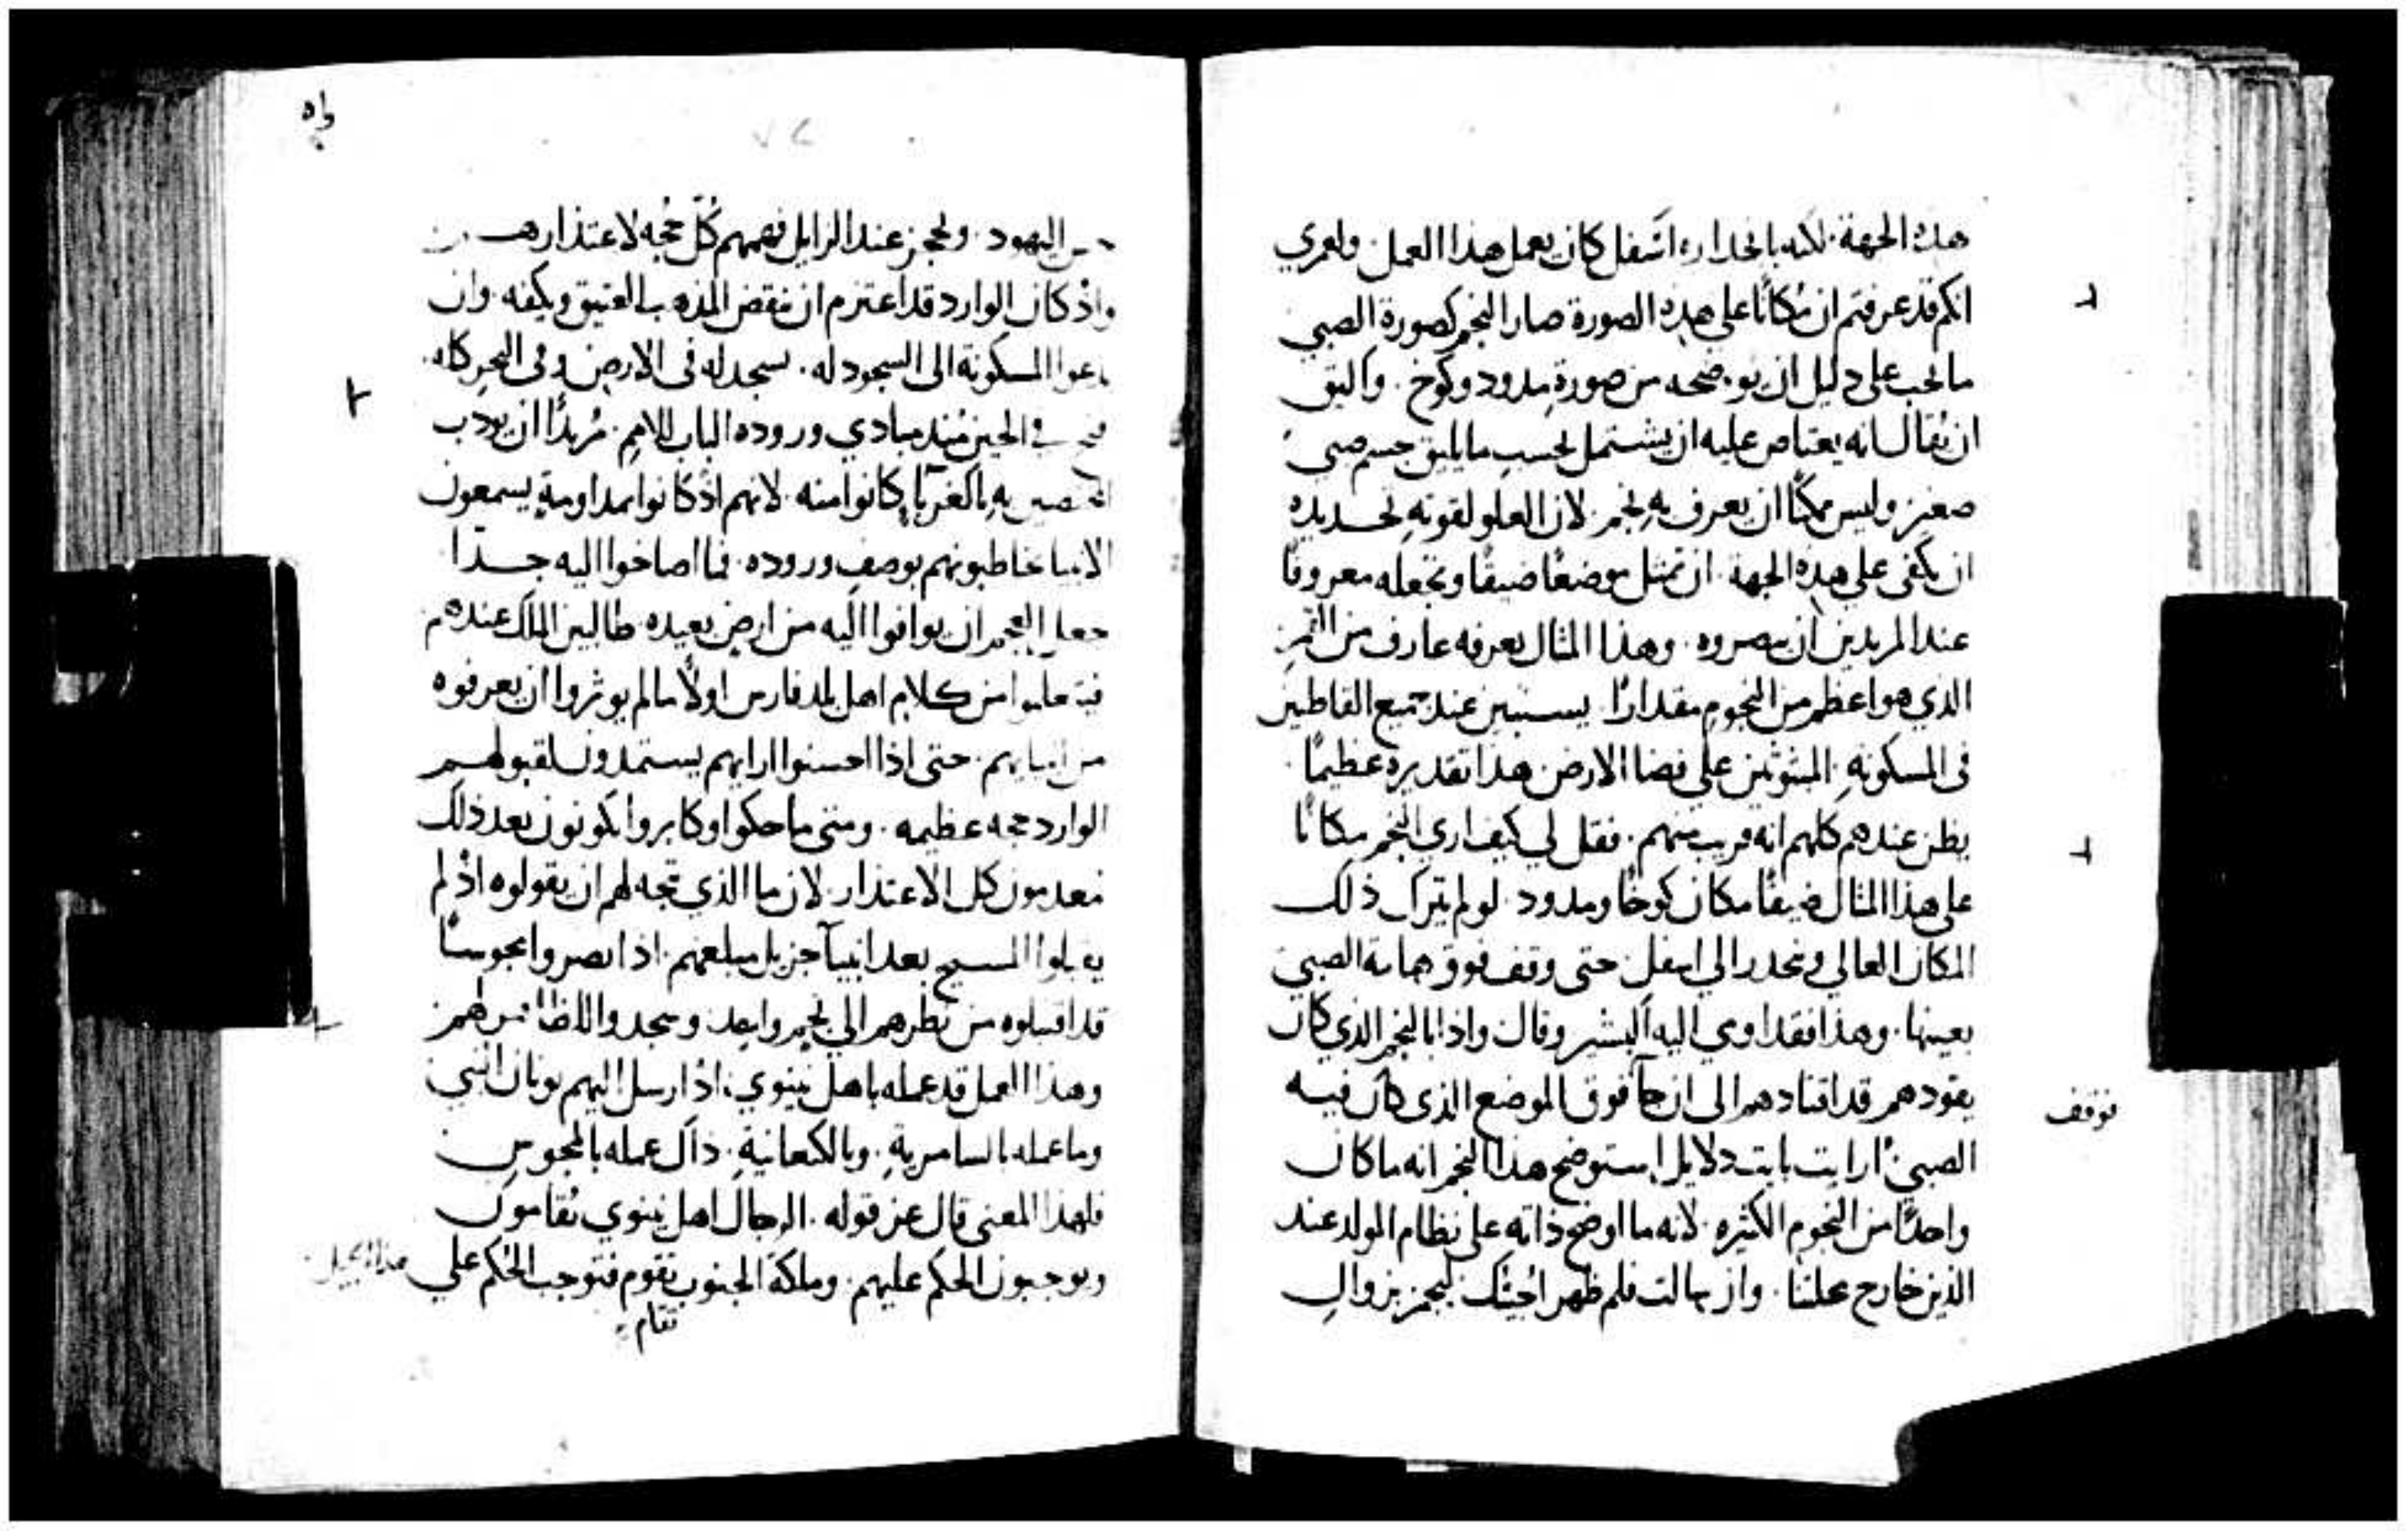 هذه الجهة. لكنه بانحداره اسفل كان يعمل هذا العمل. ولعمري
انكم قد عرفتم ان مكانًا على هذه الصورة صار النجم كصورة الصبي
ما يجب على دليل ان يوضحه من صورة مدود وكوخ. واليق
ان يقال انه يعتاص عليه ان يشتمل بحسب ما يليق جسم صبي
صغير وليس ممكنًا ان يعرف به نجم. لان العلو لقوته تحديده
ان يكفي على هذه الجهة. ان تمثل موضعًا ضيقًا وتجعله معروفًا
عند المريدين ان يبصروه. وهذا المثال يعرفه عارف من القمر
الذي هو اعظم من النجوم مقدارًا يستبين عند جميع القاطنين
في المسكونه. المبثوثين على فضا الارض هذا تقديره عظيمًا
يظن عندهم كلهم انه قريب منهم. فقل لي كيف اري النجم مكانًا
على هذا المثال ضيقًا مكان كوخًا ومدود. لو لم يترك ذلك
المكان العالي وينحدر الي اسفل حتى وقف فوق هامة الصبي
بعينها. وهذا فقد اومي اليه البشير وقال واذا بالنجم الذي كان
يقودهم قد اقتادهم الى ان جآ فوق الموضع الذي كان فيه
توقف
الصبي. ارايت بايت دلايل استوضح هذا النجم انه ما كان
واحدًا من النجوم الكثيره. لانه ما اوضح ذاته على نظام المولد عند
الذين خارج عملنا. وان سالت فلم ظهر اجبتك ليحجز بزوال
اليهود. وليحجز عند الرايل فهمهم كل حجه لاعتذارهم
واذ كان الوارد قد اعتزم ان ينقض المذهب العتيق ويكفه. وان
يدعوا المسكونة الى السجود له. يسجد له في الارض وفي البحر كله.
فتح في الحين منذ مبادي وروده الباب للامم. مريدًا ان يودب
المختصين به بالغربآ كانوا منه. لانهم اذ كانوا بمداومة يسمعون
الانبيا يخاطبونهم بوصف وروده. فما اصاخوا اليه جدًا
جعل العجم ان يوافوا اليه من ارض بعيده. طالبين الملك عندهم
فيتعلموا من كلام اهل بلد فارس اولًا ما لم يوثروا ان يعرفوه
من انبيايهم. حتى اذا احسنوا ارايهم يستمدون لقبولهم
الوارد حجه عظيمه. ومتى ما حكوا وكابروا يكونون بعد ذلك
معدمون كل الاعتذار. لان ما الذي يتجه لهم ان يقولوه اذ لم
يقبلوا المسيح بعد انبيآ جزيل مبلغهم. اذا بصروا بمجوسًا
قد اقتبلوه من نظرهم الي نجم واحد. وسجدوا للظاهر لهم
وهذا العمل قد عمله باهل نينوي. اذ ارسل اليهم يونان النبي
وما عمله بالسامرية. وبالكنعانية. ذاك عمله بالمجوس
فلهذا المعنى قال عز قوله. الرجال اهل نينوي يقامون
ويوجبون الحكم عليهم. وملكة الجنوب تقوم فتوجب الحكم علي
تقام